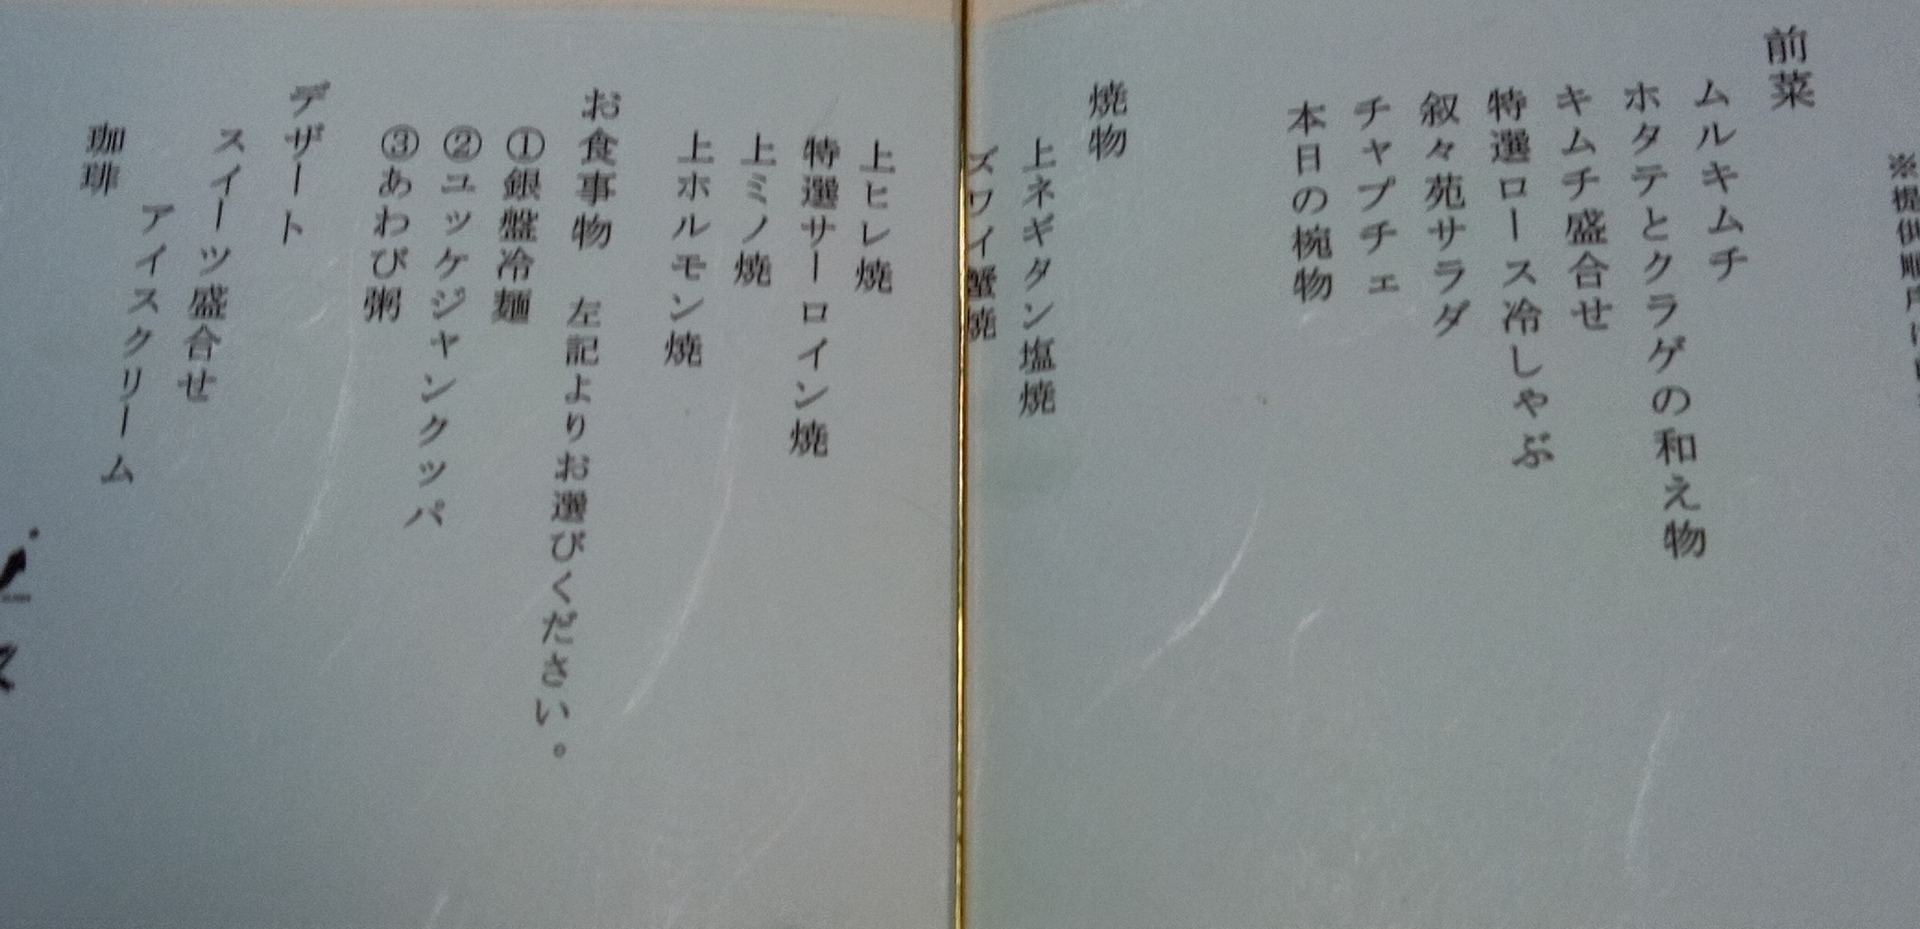 前菜
ムルキムチ
ホタテとクラゲの和え物
キムチ盛合せ
特選ロース冷しゃぶ
叙々苑サラダ
チャプチェ
本日の椀物
焼物
上ネギタン塩焼
ズワイ蟹焼
上ヒレ焼
特選サーロイン焼
上ミノ焼
上ホルモン焼
お食事物 左記よりお選びください。
①銀盤冷麺
②ユッケジャンクッパ
③あわび粥
デザート
スイーツ盛合せ
アイスクリーム
珈琲